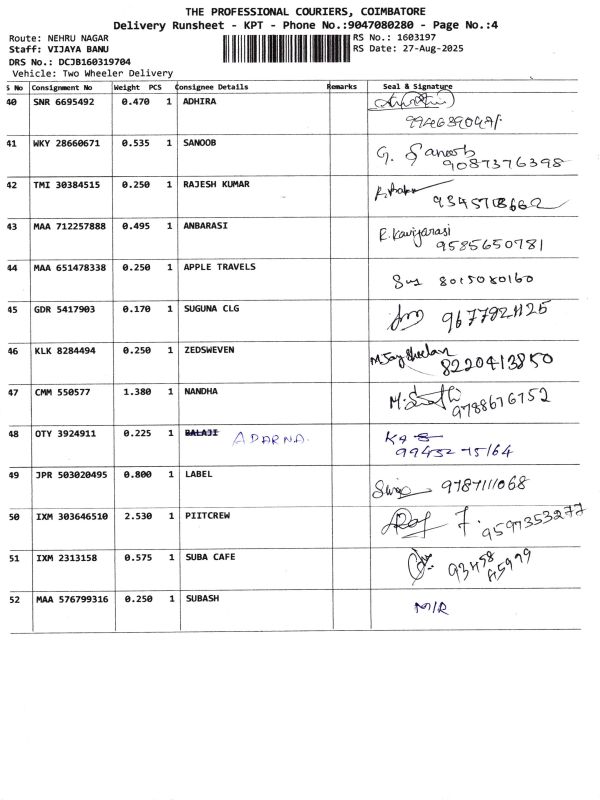 THE PROFESSIONAL COURIERS, COIMBATORE
Delivery Runsheet - KPT - Phone No.:9047080280 - Page No.:4
Route: NEHRU NAGAR RS No.: 1603197
Staff: VIJAYA BANU RS Date: 27-Aug-2025
DRS No.: DCJB160319704
Vehicle: Two Wheeler Delivery
S No Consignment No Weight PCS Consignee Details Remarks Seal & Signature
40 SNR 6695492 0.470 1 ADHIRA
41 WKY 28660671 0.535 1 SANOOB G. Sanoob
9087376398
42 TMI 30384515 0.250 1 RAJESH KUMAR
43 MAA 712257888 0.495 1 ANBARASI R.Kaviyarasi
9585650781
44 MAA 651478338 0.250 1 APPLE TRAVELS 8015080160
45 GDR 5417903 0.170 1 SUGUNA CLG
46 KLK 8284494 0.250 1 ZEDSWEVEN
8220413850
47 CMM 550577 1.380 1 NANDHA
9788676752
48 OTY 3924911 0.225 1 BALAJI APARNA.
99452 75164
49 JPR 503020495 0.800 1 LABEL 9787111068
50 IXM 303646510 2.530 1 PIITCREW 9597353277
51 IXM 2313158 0.575 1 SUBA CAFE
52 MAA 576799316 0.250 1 SUBASH M/R